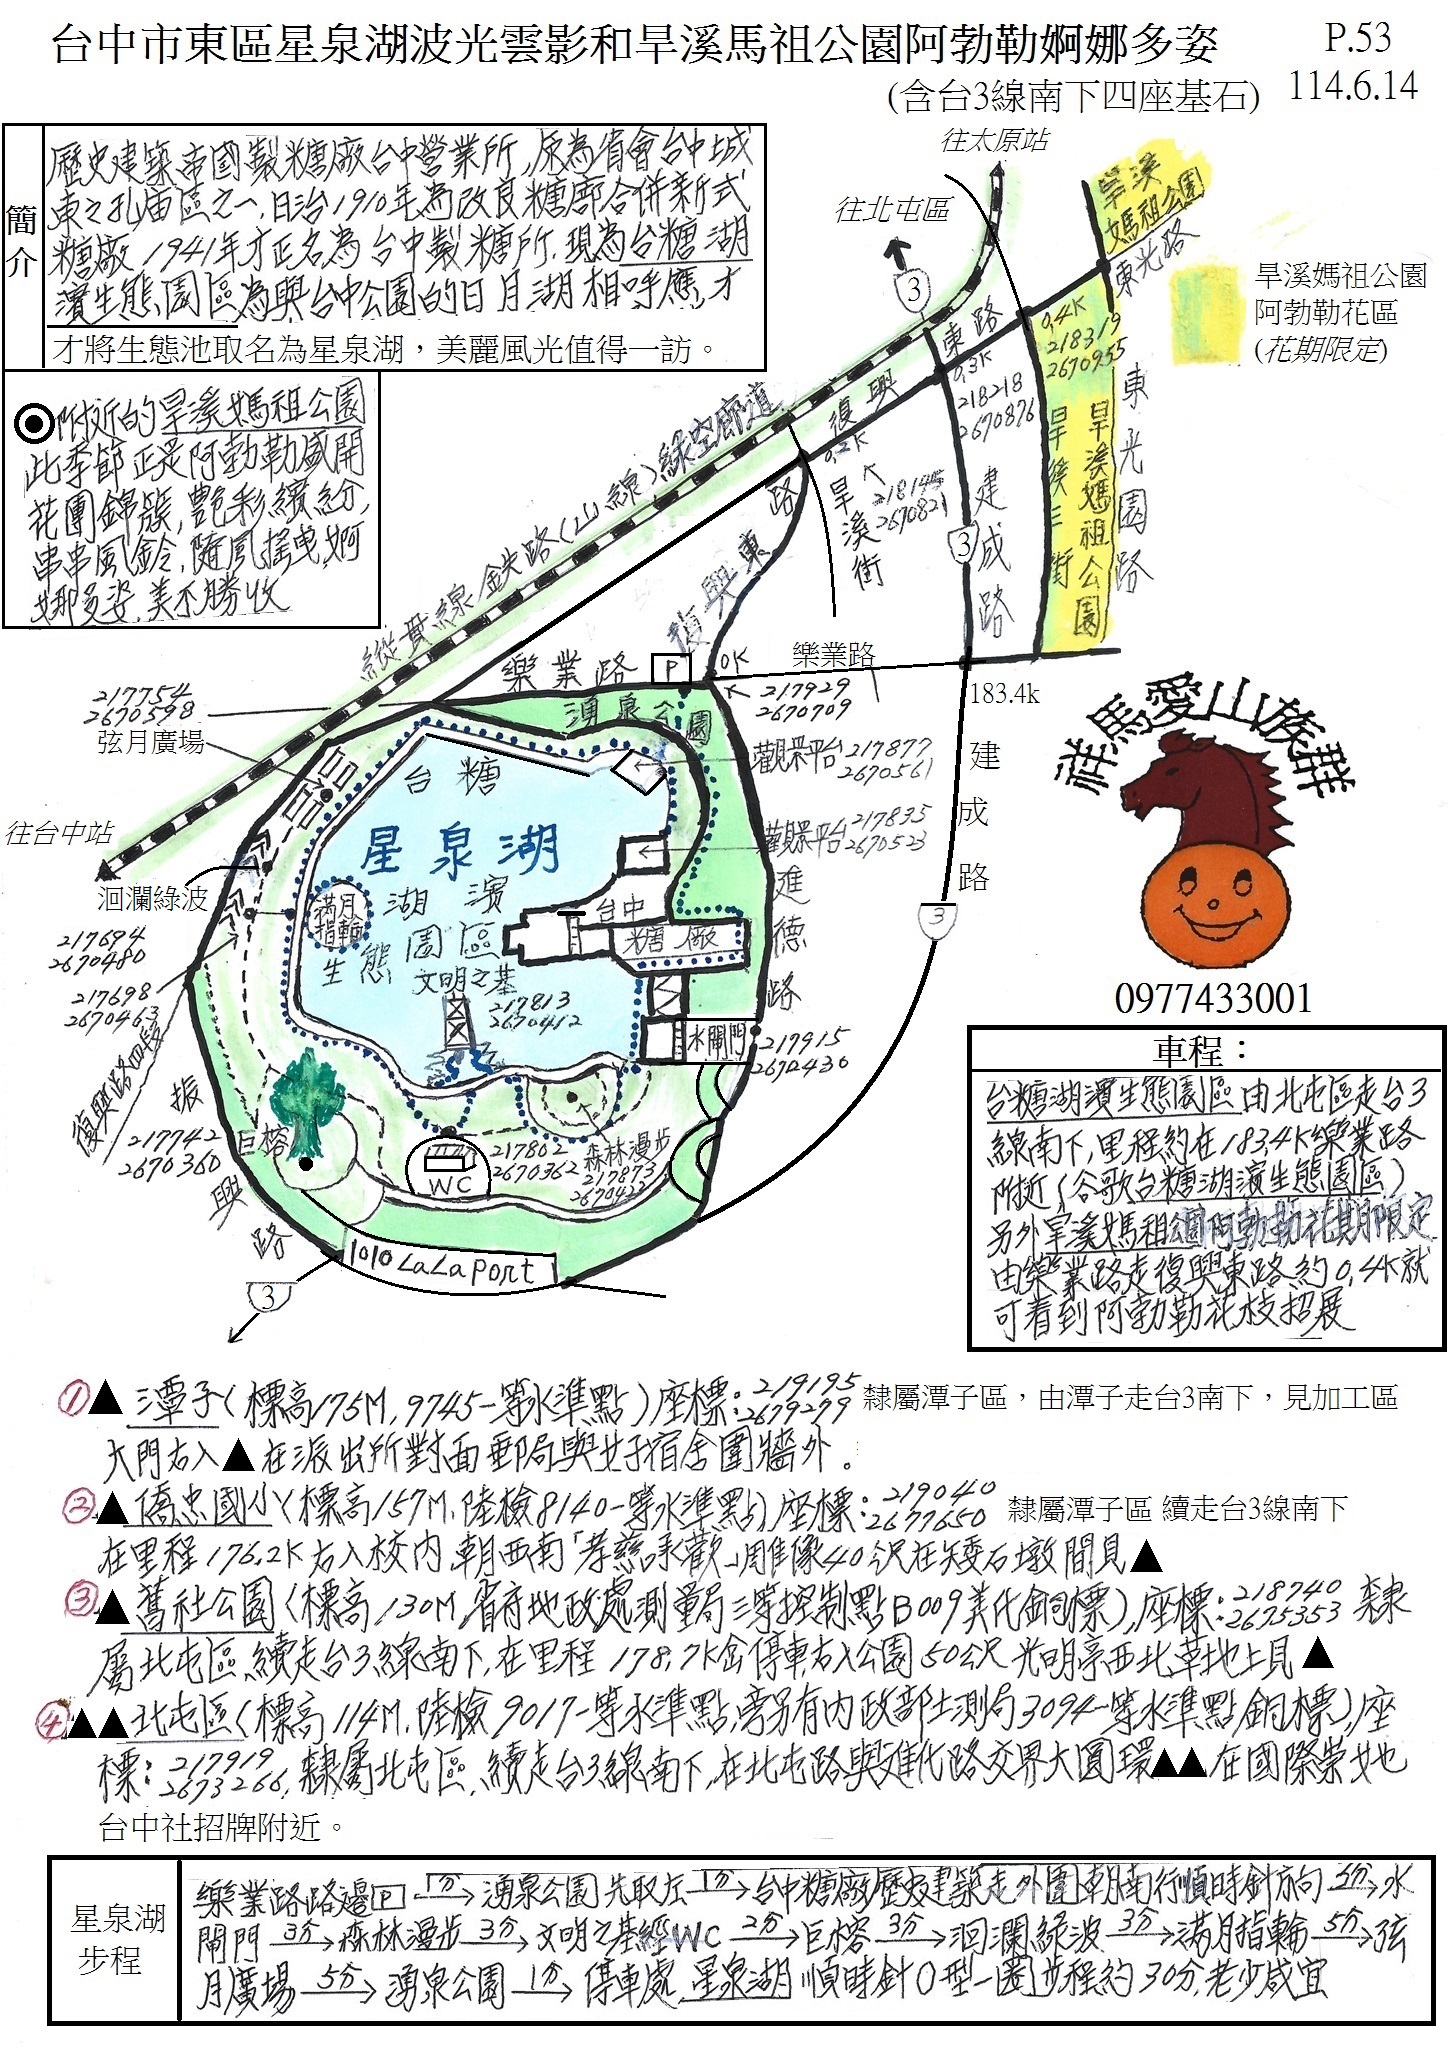 台中市東區星泉湖波光雲影和旱溪馬祖公園阿勃勒婀娜多姿
P.53
(含台3線南下四座基石)
114.6.14
簡介
歷史建築帝國製糖廠台中營業所,原為省會台中城
東之孔庙區之一,日治1910年為改良糖廍合併新式
糖廠,1941年才正名為台中製糖所.現為台糖湖
濱生態園區為與台中公園的日月湖相呼應,才
才將生態池取名為星泉湖,美麗風光值得一訪。
附近的旱溪媽祖公園
此季節正是阿勃勒盛開
花團錦簇,艷彩繽紛,
串串風鈴,隨風搖曳,婀
娜多姿,美不勝收
往太原站
往北屯區
3
旱溪
媽祖公園
東光路
旱溪媽祖公園
阿勃勒花區
(花期限定)
縱貫線鉄路(山線)綠空廊道
復興東路
0.4K
218319
2670955
0.3K
218218
2670876
0.2K
218145
2670821
旱溪街
建成路
3
旱溪三街
旱溪媽祖公園
東光園路
復興東路
樂業路
P
0K
217929
2670709
樂業路
183.4k
217754
2670598
弦月廣場
湧泉公園
觀景平台217877
2670561
觀景平台217835
2670523
建成路
3
往台中站
洄瀾綠波
217694
2670480
217698
2670463
復興路四段
台糖
星泉湖
湖濱
生態園區
滿月指輪
台中
糖廠
文明之基
217813
2670412
進德路
水閘門
217915
2670430
振興路
217742
2670360
巨榕
WC
217802
2670362
森林漫步
217873
2670422
1010 LaLaport
3
祥馬愛山族群
0977433001
車程:
台糖湖濱生態園區由北屯區走台3
線南下,里程約在183.4K樂業路
附近(谷歌台糖湖濱生態園區)
另外旱溪媽祖公園阿勃勒花期限定
由樂業路走復興東路約0.4K就
可看到阿勃勒花枝招展
①▲潭子(標高175M,9745一等水準點)座標:219195
2679279
隸屬潭子區,由潭子走台3南下,見加工區
大門右入▲在派出所對面郵局與女子宿舍圍牆外。
②▲僑忠國小(標高157M.陸檢8140一等水準點),座標:219040
2677650
隸屬潭子區 續走台3線南下
在里程176.2K右入校內,朝西南「孝慈承歡」雕像40公尺在矮石墩間見▲
③▲舊社公園(標高130M,省府地政處測量局三等控制點B009美代銅標),座標:218740
2675353 隸
屬北屯區,續走台3線南下,在里程178.7K岔停車右入公園50公尺光明亭西北草地上見▲
④▲▲北屯區(標高114M.陸檢9017一等水準點,旁另有內政部土測局3094一等水準點銅標),座
標:217919
2673266,隸屬北屯區,續走台3線南下,在北屯路與進化路交界大圓環▲▲在國際崇她
台中社招牌附近。
星泉湖
步程
樂業路路邊P 1分→湧泉公園先取左 1分→台中糖廠歷史建築走外圍朝南行順時針方向 5分→水
閘門 3分→森林漫步 3分→文明之基經WC 2分→巨榕 3分→洄瀾綠波 3分→滿月指輪 5分→弦
月廣場 5分→湧泉公園 1分→停車處.星泉湖順時針O型一圈步程約30分,老少咸宜